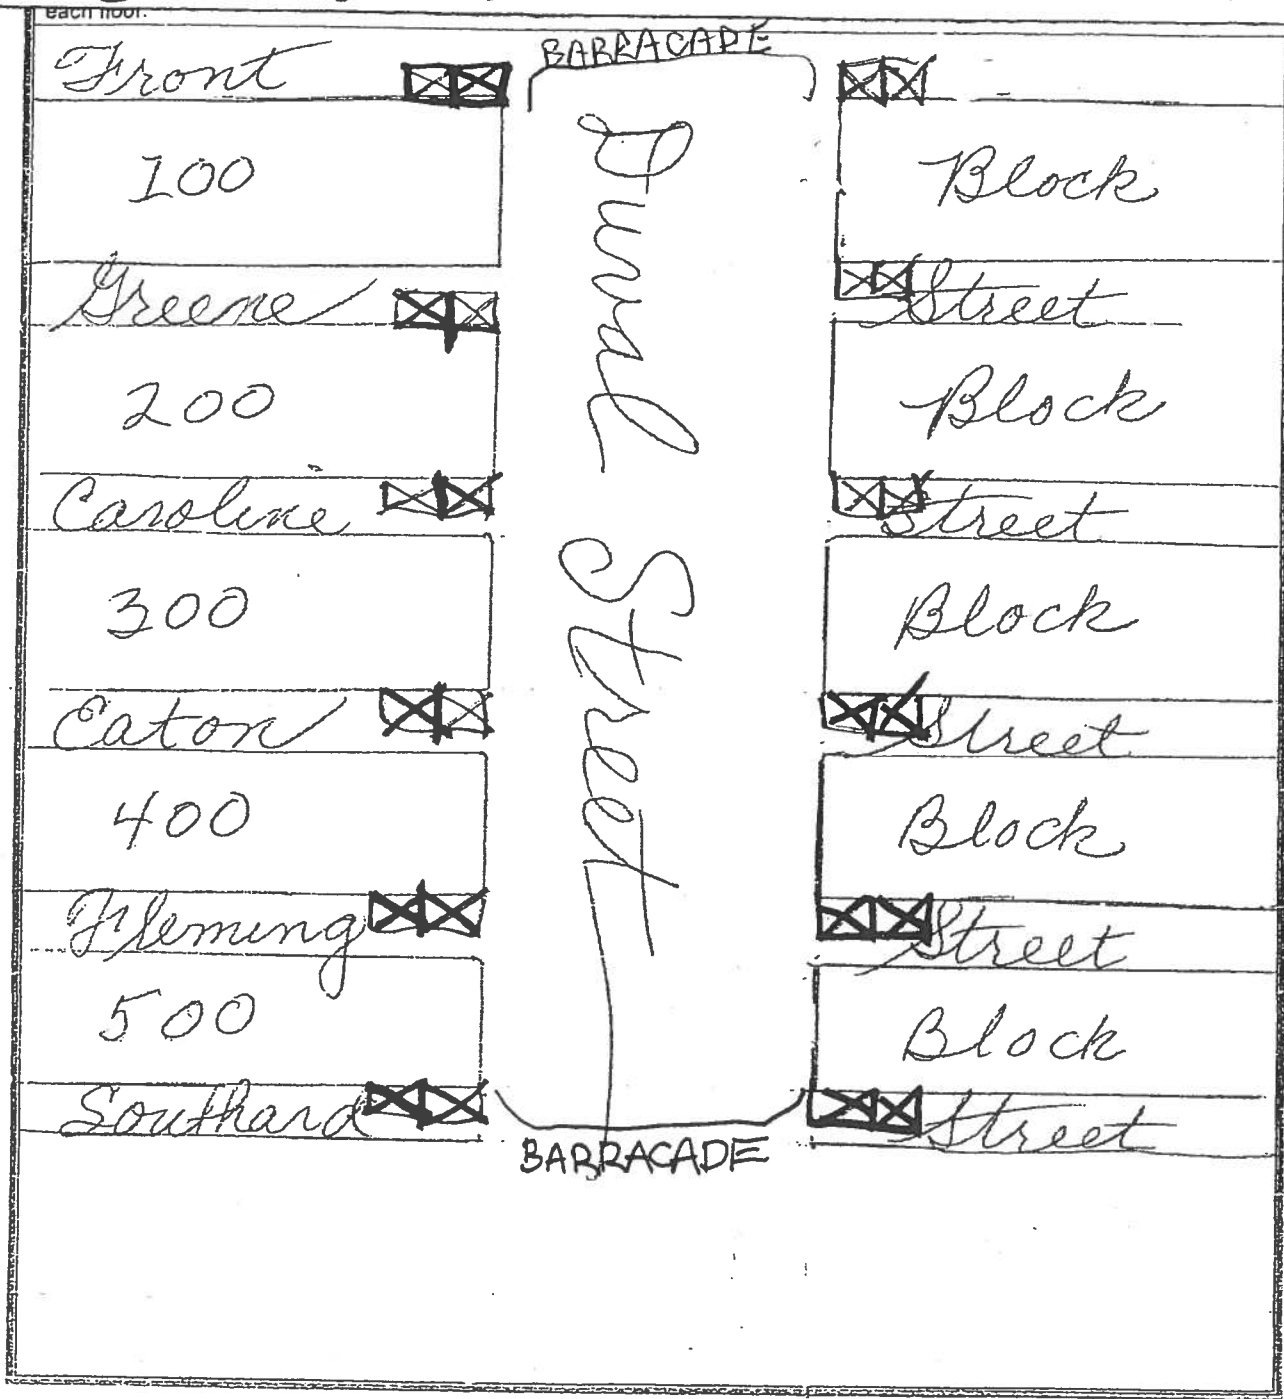 each floor.
BARRACADE
Front
100 Block
Greene Street
200 Block
Caroline Street
300 Block
Eaton Street
400 Block
Fleming Street
500 Block
Southard Street
Duval Street
BARRACADE